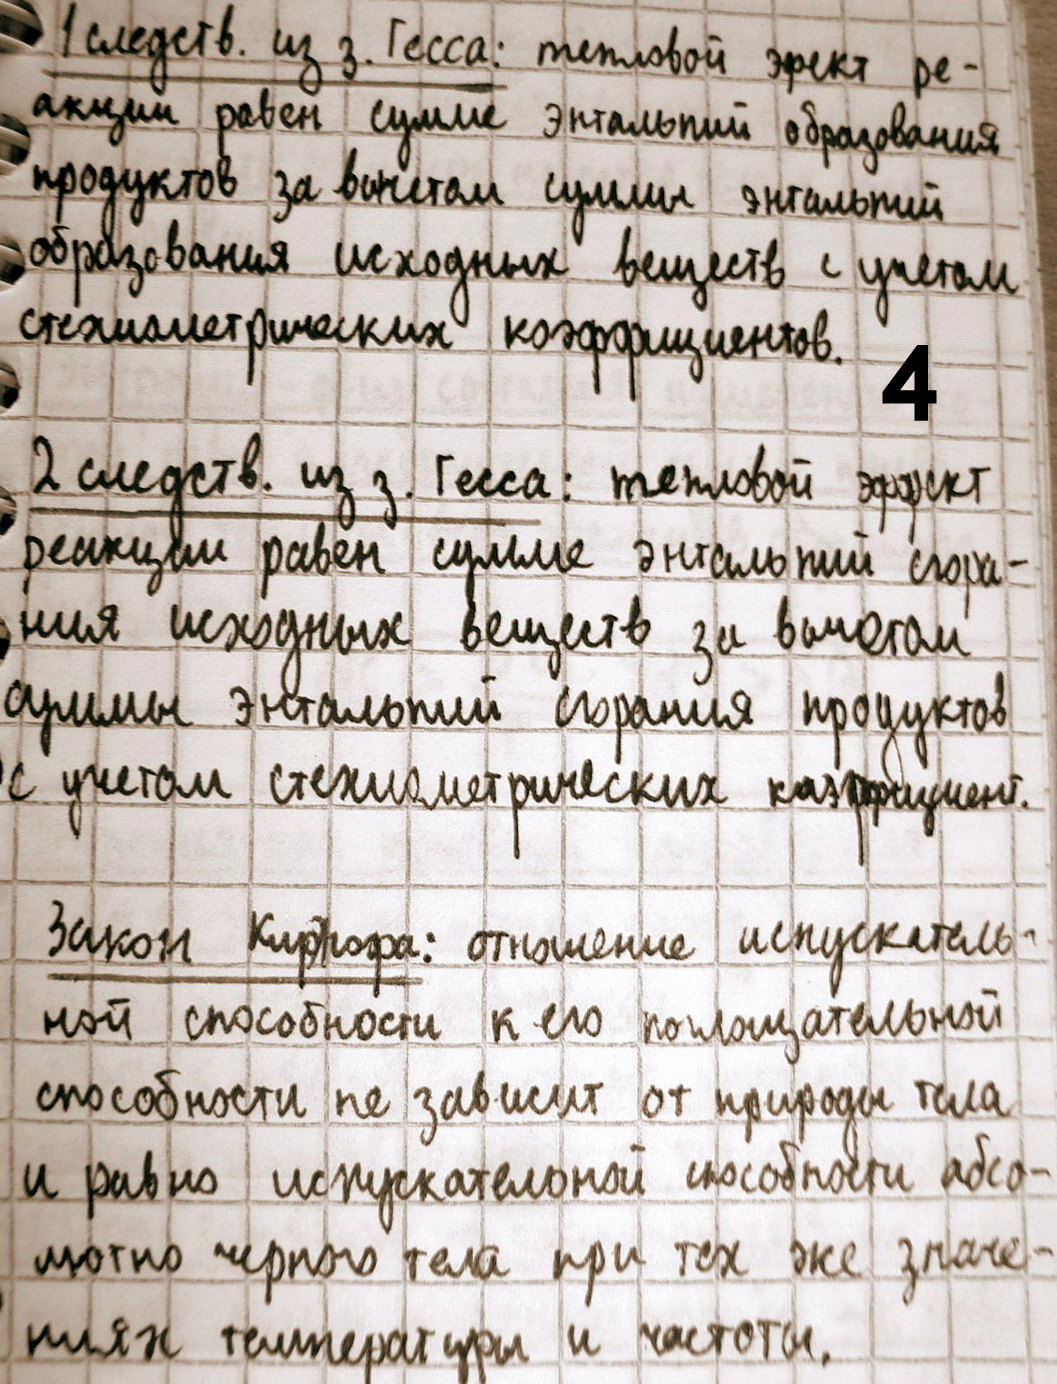 1 следств. из з. Гесса: тепловой эфект ре-
акции равен сумме энтальпий образования
продуктов за вычетом суммы энтальпий
образования исходных веществ с учетом
стехиометрических коэффициентов.
4
2 следств. из з. Гесса: тепловой эффект
реакции равен сумме энтальпий сгора-
ния исходных веществ за вычетом
суммы энтальпий сгорания продуктов
с учетом стехиометрических каэффициент.
Закон Кирхофа: отношение испускатель-
ной способности к его поглощательной
способности не зависит от природы тела
и равно испускательной способности абсо-
лютно черного тела при тех же значе-
ниях температуры и частоты.